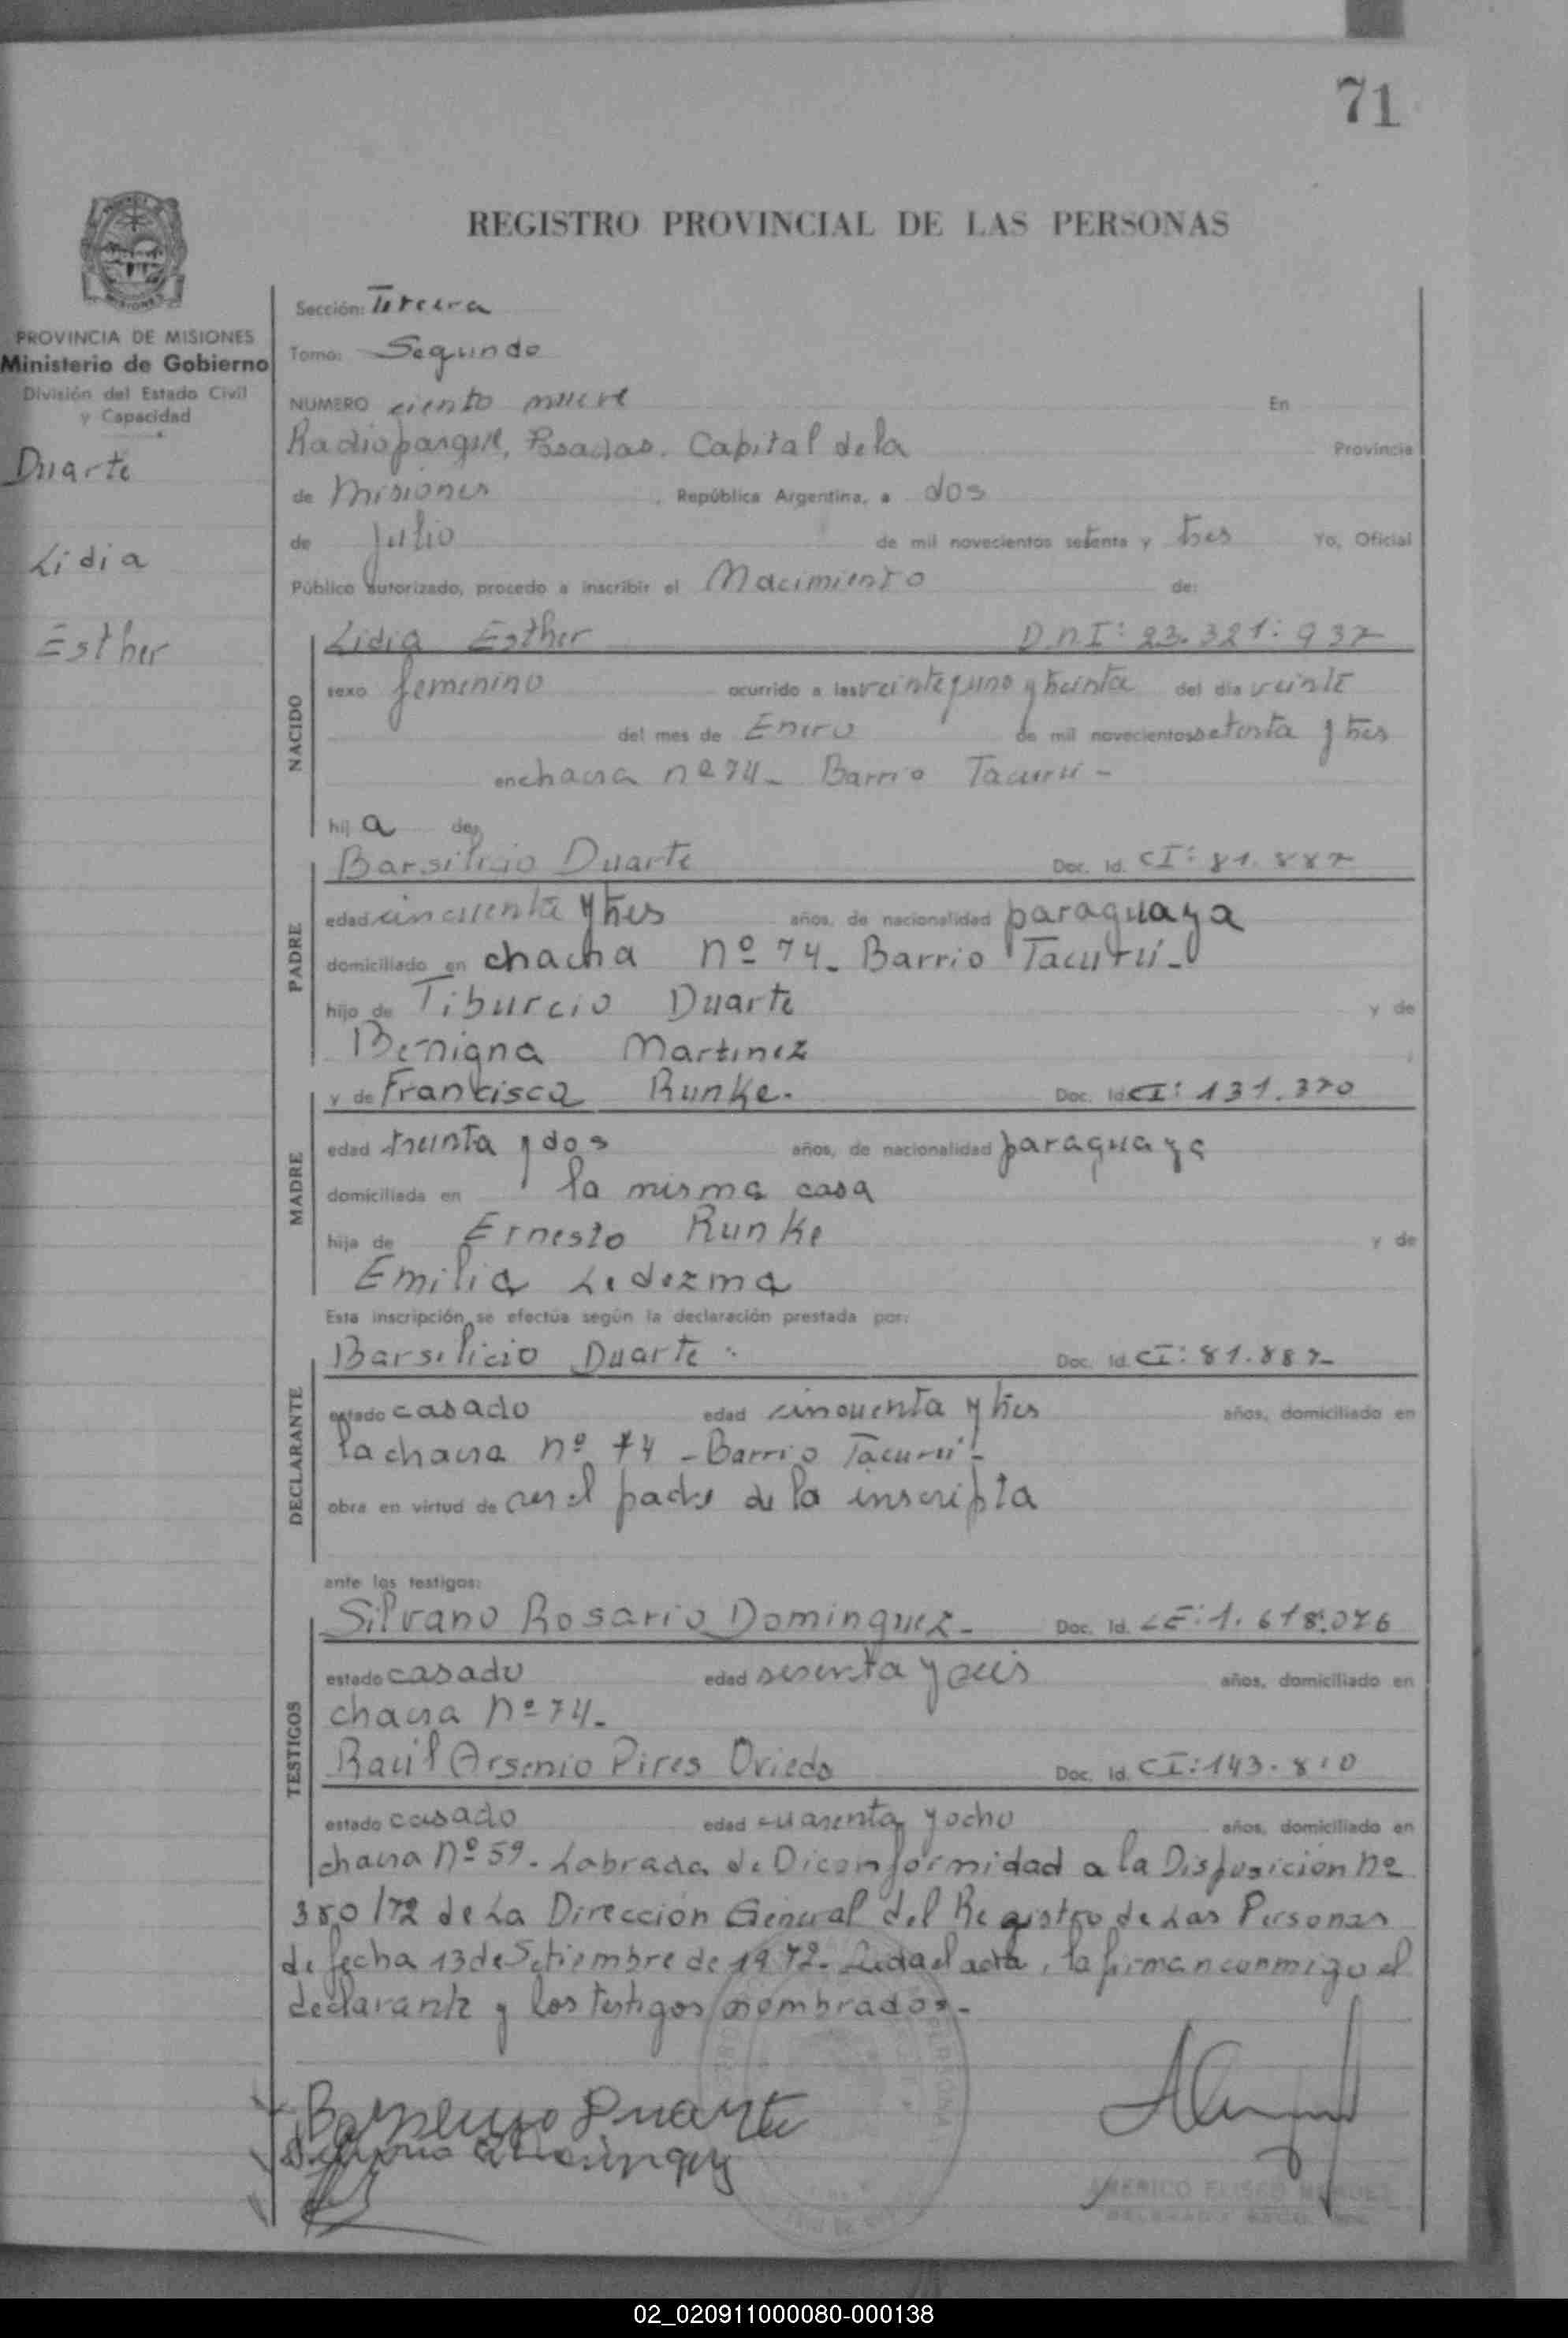 71
REGISTRO PROVINCIAL DE LAS PERSONAS
PROVINCIA DE MISIONES
Ministerio de Gobierno
División del Estado Civil
y Capacidad
Duarte
Lidia
Esther
Sección: Tercera
Tomo: Segundo
NUMERO ciento nueve En
Radioparque, Posadas. Capital de la Provincia
de Misiones, República Argentina, a dos
de Julio de mil novecientos setenta y tres Yo, Oficial
Público autorizado, procedo a inscribir el Nacimiento de:
NACIDO
Lidia Esther D.N.I: 23.321.937
sexo femenino ocurrido a las veinte y uno y treinta del día veinte
del mes de Enero de mil novecientos setenta y tres
en chacra nº 74- Barrio Tacurú-
hij a de:
PADRE
Barsilicio Duarte Doc. Id. CI: 81.887
edad cincuenta y tres años, de nacionalidad paraguaya
domiciliado en chacra nº 74- Barrio Tacurú-
hijo de Tiburcio Duarte y de
Benigna Martinez
MADRE
y de Francisca Runke. Doc. Id. CI: 131.370
edad treinta y dos años, de nacionalidad paraguaya
domiciliada en la misma casa
hija de Ernesto Runke y de
Emilia Ledezma
Esta inscripción se efectúa según la declaración prestada por:
DECLARANTE
Barsilicio Duarte Doc. Id. CI: 81.887-
estado casado edad cincuenta y tres años, domiciliado en
la chacra nº 74 - Barrio Tacurú-
obra en virtud de ser el padre de la inscripta
ante los testigos:
TESTIGOS
Silvano Rosario Dominguez- Doc. Id. LE: 1.618.076
estado casado edad sesenta y seis años, domiciliado en
chacra nº 74-
Raúl Arsenio Pires Oviedo Doc. Id. CI: 143.810
estado casado edad cuarenta y ocho años, domiciliado en
chacra nº 59. Labrada de Diconformidad a la Disposición nº
380/72 de La Dirección General del Registro de Las Personas
de fecha 13 de Setiembre de 1972. Leida el acta, la firman conmigo el
declarante y los testigos nombrados.-
Duarte
AMERICO ELISEO
02_020911000080-000138